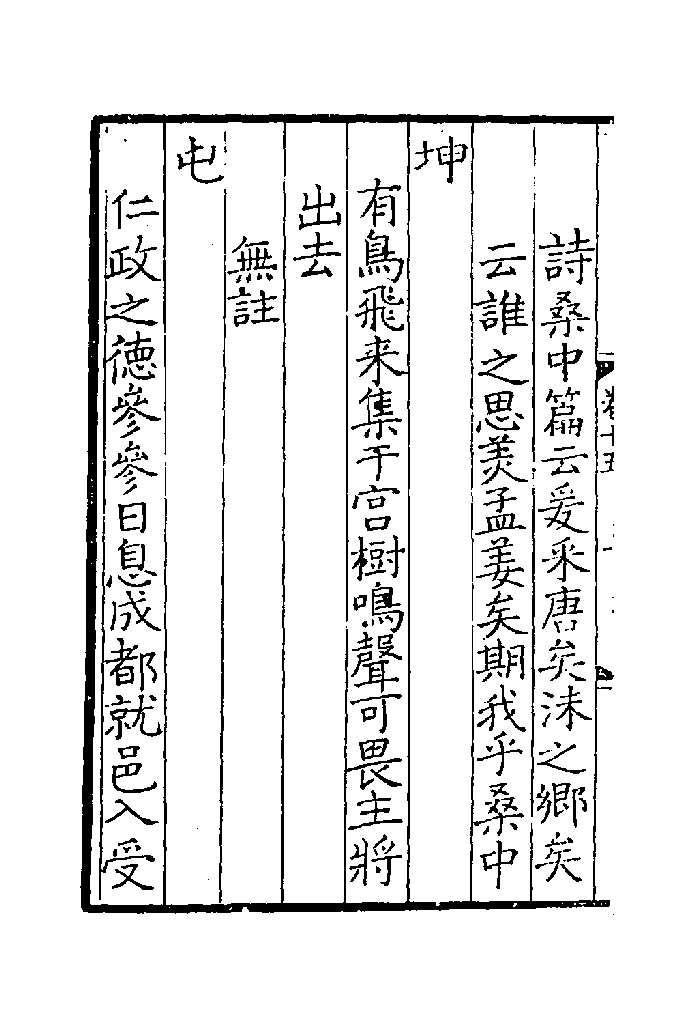 詩桑中篇云爰采唐矣沬之鄉矣
云誰之思美孟姜矣期我乎桑中
坤
有鳥飛来集于宫樹鳴聲可畏主將
出去
無註
屯
仁政之徳參參日息成都就邑入受
卷十五